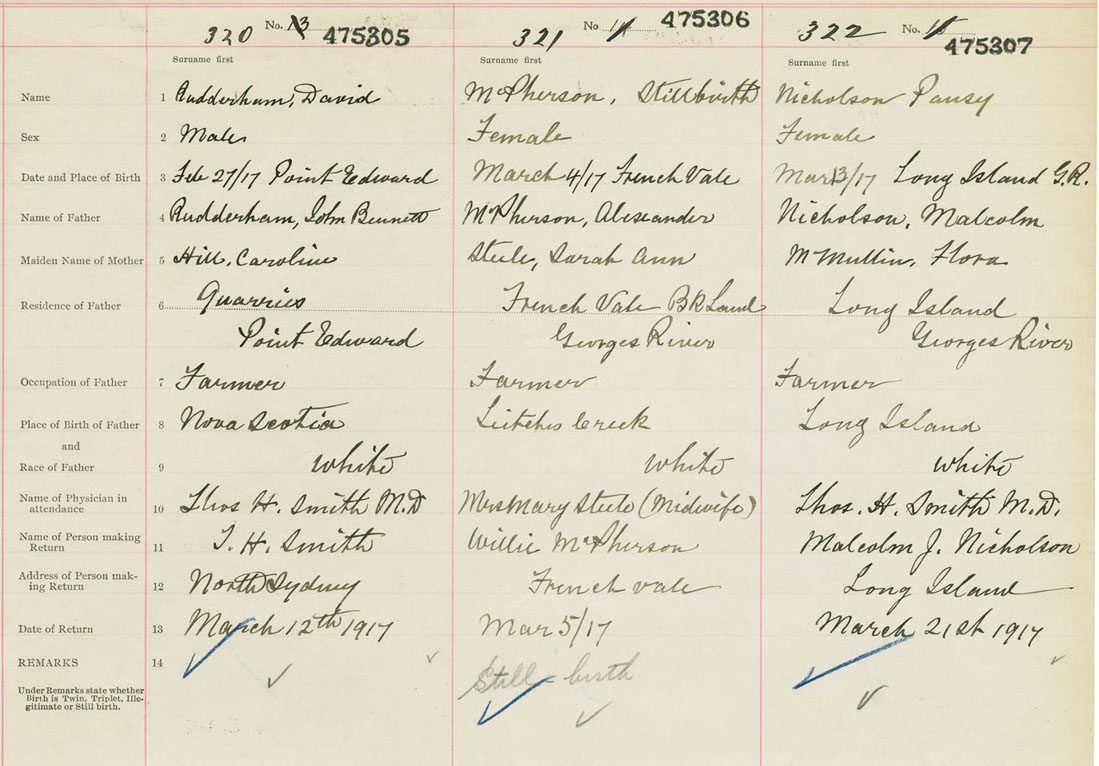 320 No. 13 475305 321 No 14 475306 322 No. 15 475307
Surname first Surname first Surname first
Name 1 Rudderham, David McPherson, Stillbirth Nicholson Pansy
Sex 2 Male Female Female
Date and Place of Birth 3 Feb 27/17 Point Edward March 4/17 French Vale Mar 13/17 Long Island G.R.
Name of Father 4 Rudderham, John Bennett McPherson, Alexander Nicholson, Malcolm
Maiden Name of Mother 5 Hill, Caroline Steele, Sarah Ann McMullin, Flora
Residence of Father 6 Quarries French Vale BK Land Long Island
Point Edward Georges River Georges River
Occupation of Father 7 Farmer Farmer Farmer
Place of Birth of Father 8 Nova Scotia Leitches Creek Long Island
and
Race of Father 9 white white white
Name of Physician in
attendance 10 Thos H. Smith M.D Mrs Mary Steele (Midwife) Thos. H. Smith M.D.
Name of Person making
Return 11 T. H. Smith Willie McPherson Malcolm J. Nicholson
Address of Person mak-
ing Return 12 North Sydney French Vale Long Island
Date of Return 13 March 12th 1917 Mar 5/17 March 21st 1917
REMARKS 14 Still-birth
Under Remarks state whether
Birth is Twin, Triplet, Ille-
gitimate or Still-birth.